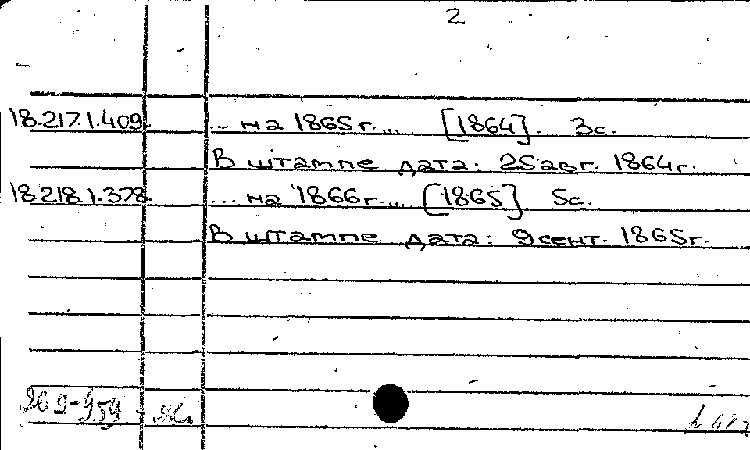 2
18.217.1.409. ... на 1865 г.... [1864]. 3 с.
В штампе дата: 25 авг. 1864 г.
18.218.1.378. ... на 1866 г.... [1865] 5 с.
В штампе дата: 9 сент. 1865 г.
269-959